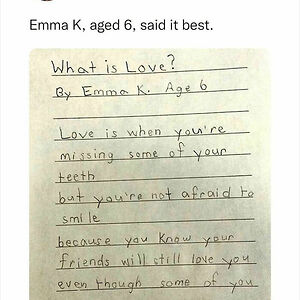 Emma K, aged 6, said it best.
What is Love?
By Emma K. Age 6
Love is when you're
missing some of your
teeth
but you're not afraid to
smile
because you know your
friends will still love you
even though some of you